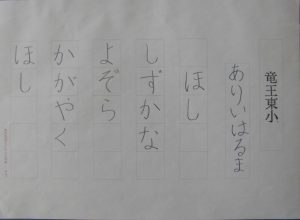 竜王東小
ありいはるま
ほし
しずかな
よぞら
かがやく
ほし